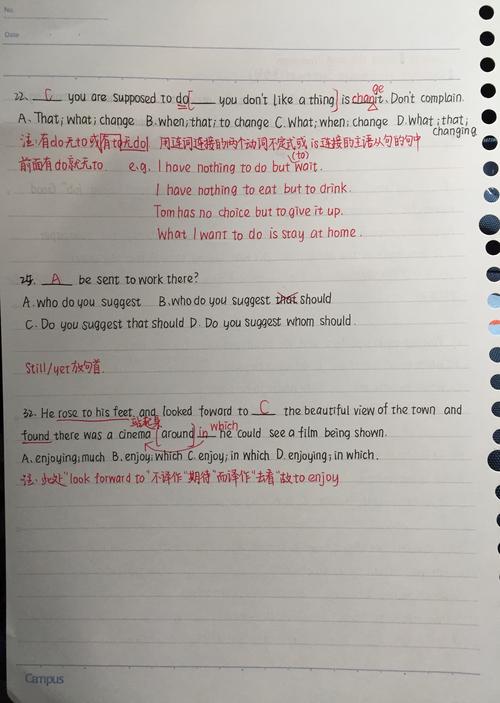 No.
Date
ge
22. C you are supposed to do[ you don't like a thing] is changit. Don't complain.
A、That; what; change B.when; that; to change C.What; when; change D.What; that;
changing
注:有do无to或有to无do 用连词连接的两个动词不定式或is连接的主语从句的句中
前面有do就无to. e.g. I have nothing to do but (to) wait.
I have nothing to eat but to drink.
Tom has no choice but to give it up.
What I want to do is stay at home.
25. A be sent to work there?
A.who do you suggest B、who do you suggest that should
C. Do you suggest that should D. Do you suggest whom should.
Still/yet放句首.
32. He rose to his feet and looked foward to C the beautiful view of the town and
站起身 which
found there was a cinema [around] in he could see a film being shown.
A、enjoying; much B、enjoy; which C.enjoy; in which D.enjoying; in which.
注:此处"look forward to"不译作"期待"而译作"去看"故to enjoy
Campus